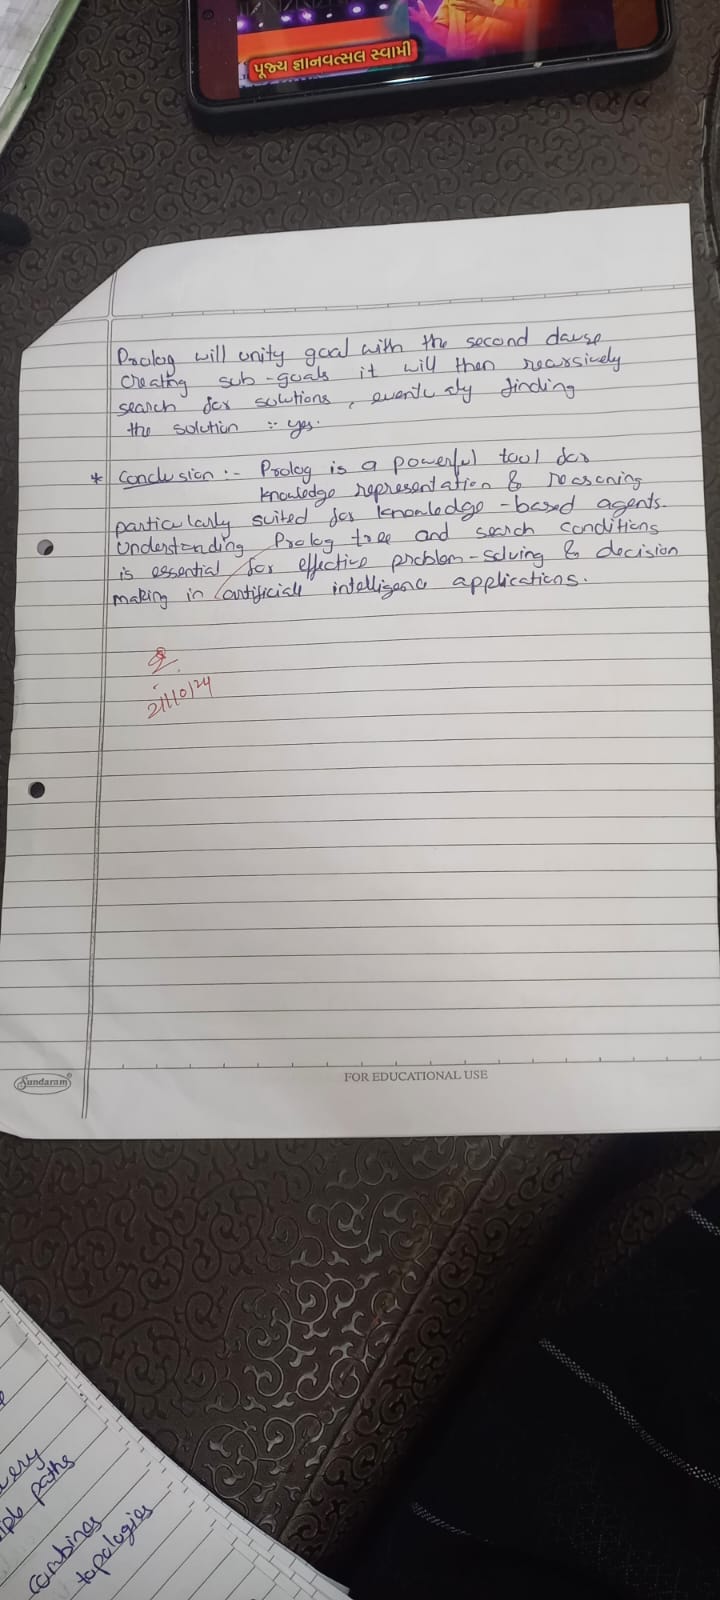 પૂજ્ય જ્ઞાનવત્સલ સ્વામી
Prolog will unity goal with the second clause
creating sub-goals it will then recursively
search for solutions, eventually finding
the solution :: yes.
* Conclusion :- Prolog is a powerful tool for
knowledge representation & reasoning
particularly suited for knowledge-based agents.
Understanding Prolog tree and search conditions
is essential for effective problem-solving & decision
making in artificiall intelligence applications.
21/10/24
Sundaram
FOR EDUCATIONAL USE
paths
combines
topologies